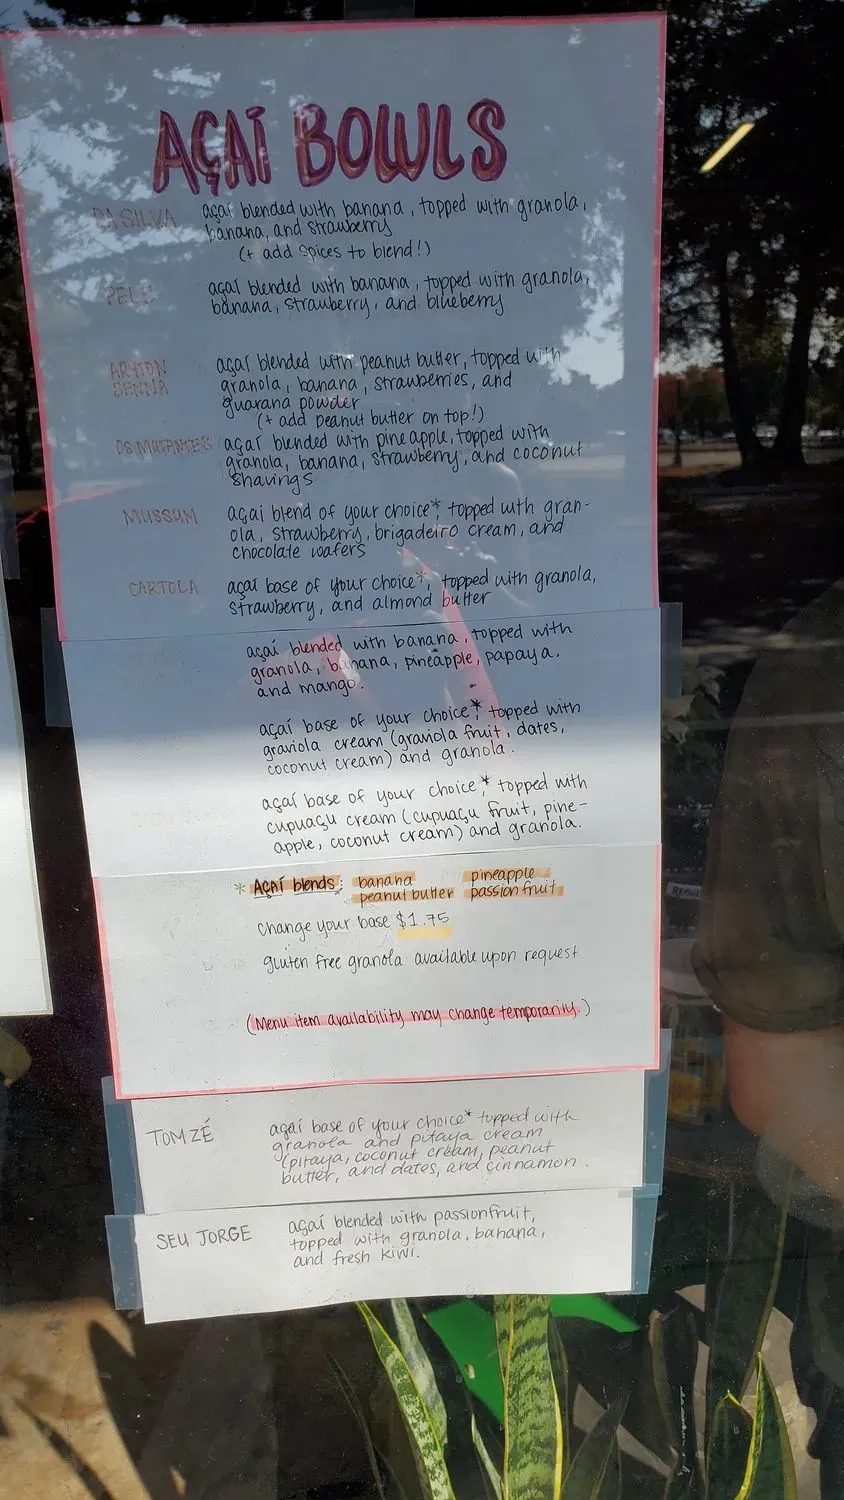 AÇAÍ BOWLS
DA SILVA açaí blended with banana, topped with granola,
banana, and strawberry
(+ add spices to blend!)
PELE açaí blended with banana, topped with granola,
banana, strawberry, and blueberry
ARYTON açaí blended with peanut butter, topped with
SENNA granola, banana, strawberries, and
guarana powder
(+ add peanut butter on top!)
OS MUTANTES açaí blended with pineapple, topped with
granola, banana, strawberry, and coconut
shavings
MUSSUM açaí blend of your choice*, topped with gran-
ola, strawberry, brigadeiro cream, and
chocolate wafers
CARTOLA açaí base of your choice*, topped with granola,
strawberry, and almond butter
açaí blended with banana, topped with
granola, banana, pineapple, papaya,
and mango.
açaí base of your choice*, topped with
graviola cream (graviola fruit, dates,
coconut cream) and granola.
açaí base of your choice*, topped with
cupuaçu cream (cupuaçu fruit, pine-
apple, coconut cream) and granola.
* AÇAÍ blends: banana pineapple
peanut butter passion fruit
change your base $1.75
gluten free granola available upon request
(Menu item availability may change temporarily.)
TOM ZÉ açaí base of your choice* topped with
granola and pitaya cream
(pitaya, coconut cream, peanut
butter, and dates, and cinnamon.
SEU JORGE açaí blended with passionfruit,
topped with granola, banana,
and fresh kiwi.